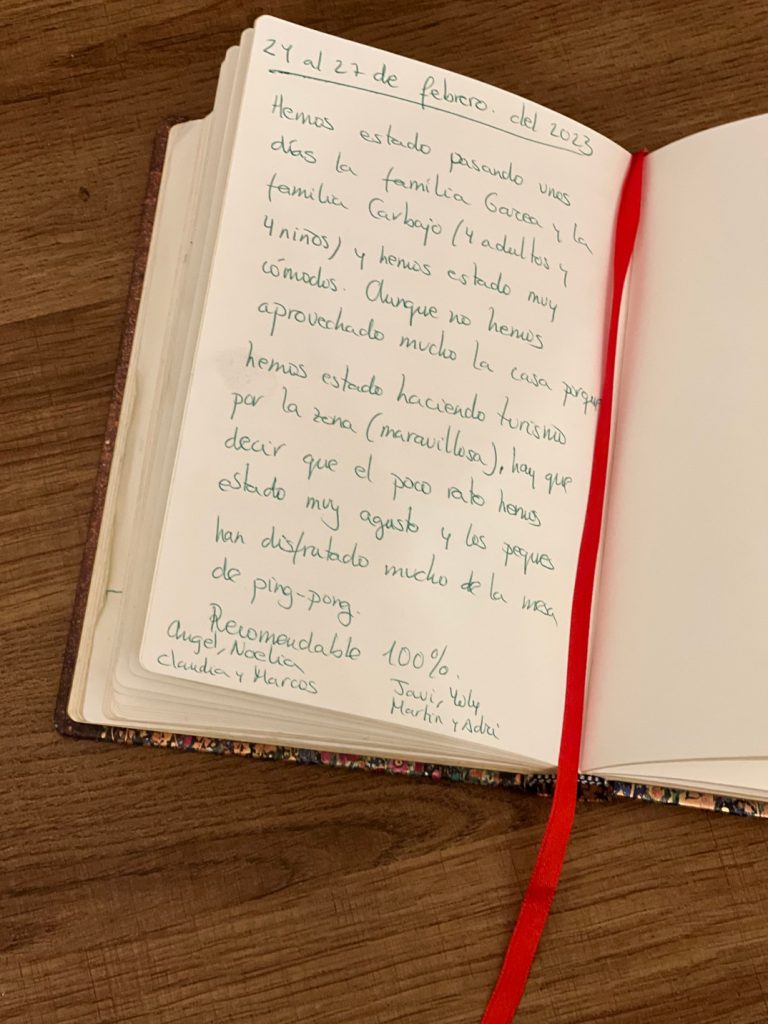 24 al 27 de febrero. del 2023
Hemos estado pasando unos
días la familia Garea y la
familia Carbajo (4 adultos y
4 niños) y hemos estado muy
cómodos. Aunque no hemos
aprovechado mucho la casa porque
hemos estado haciendo turismo
por la zona (maravillosa), hay que
decir que el poco rato hemos
estado muy agusto y los peques
han disfrutado mucho de la mesa
de ping-pong.
Recomendable 100%.
Angel, Noelia
Claudia y Marcos
Javi, Yoly
Martín y Adri